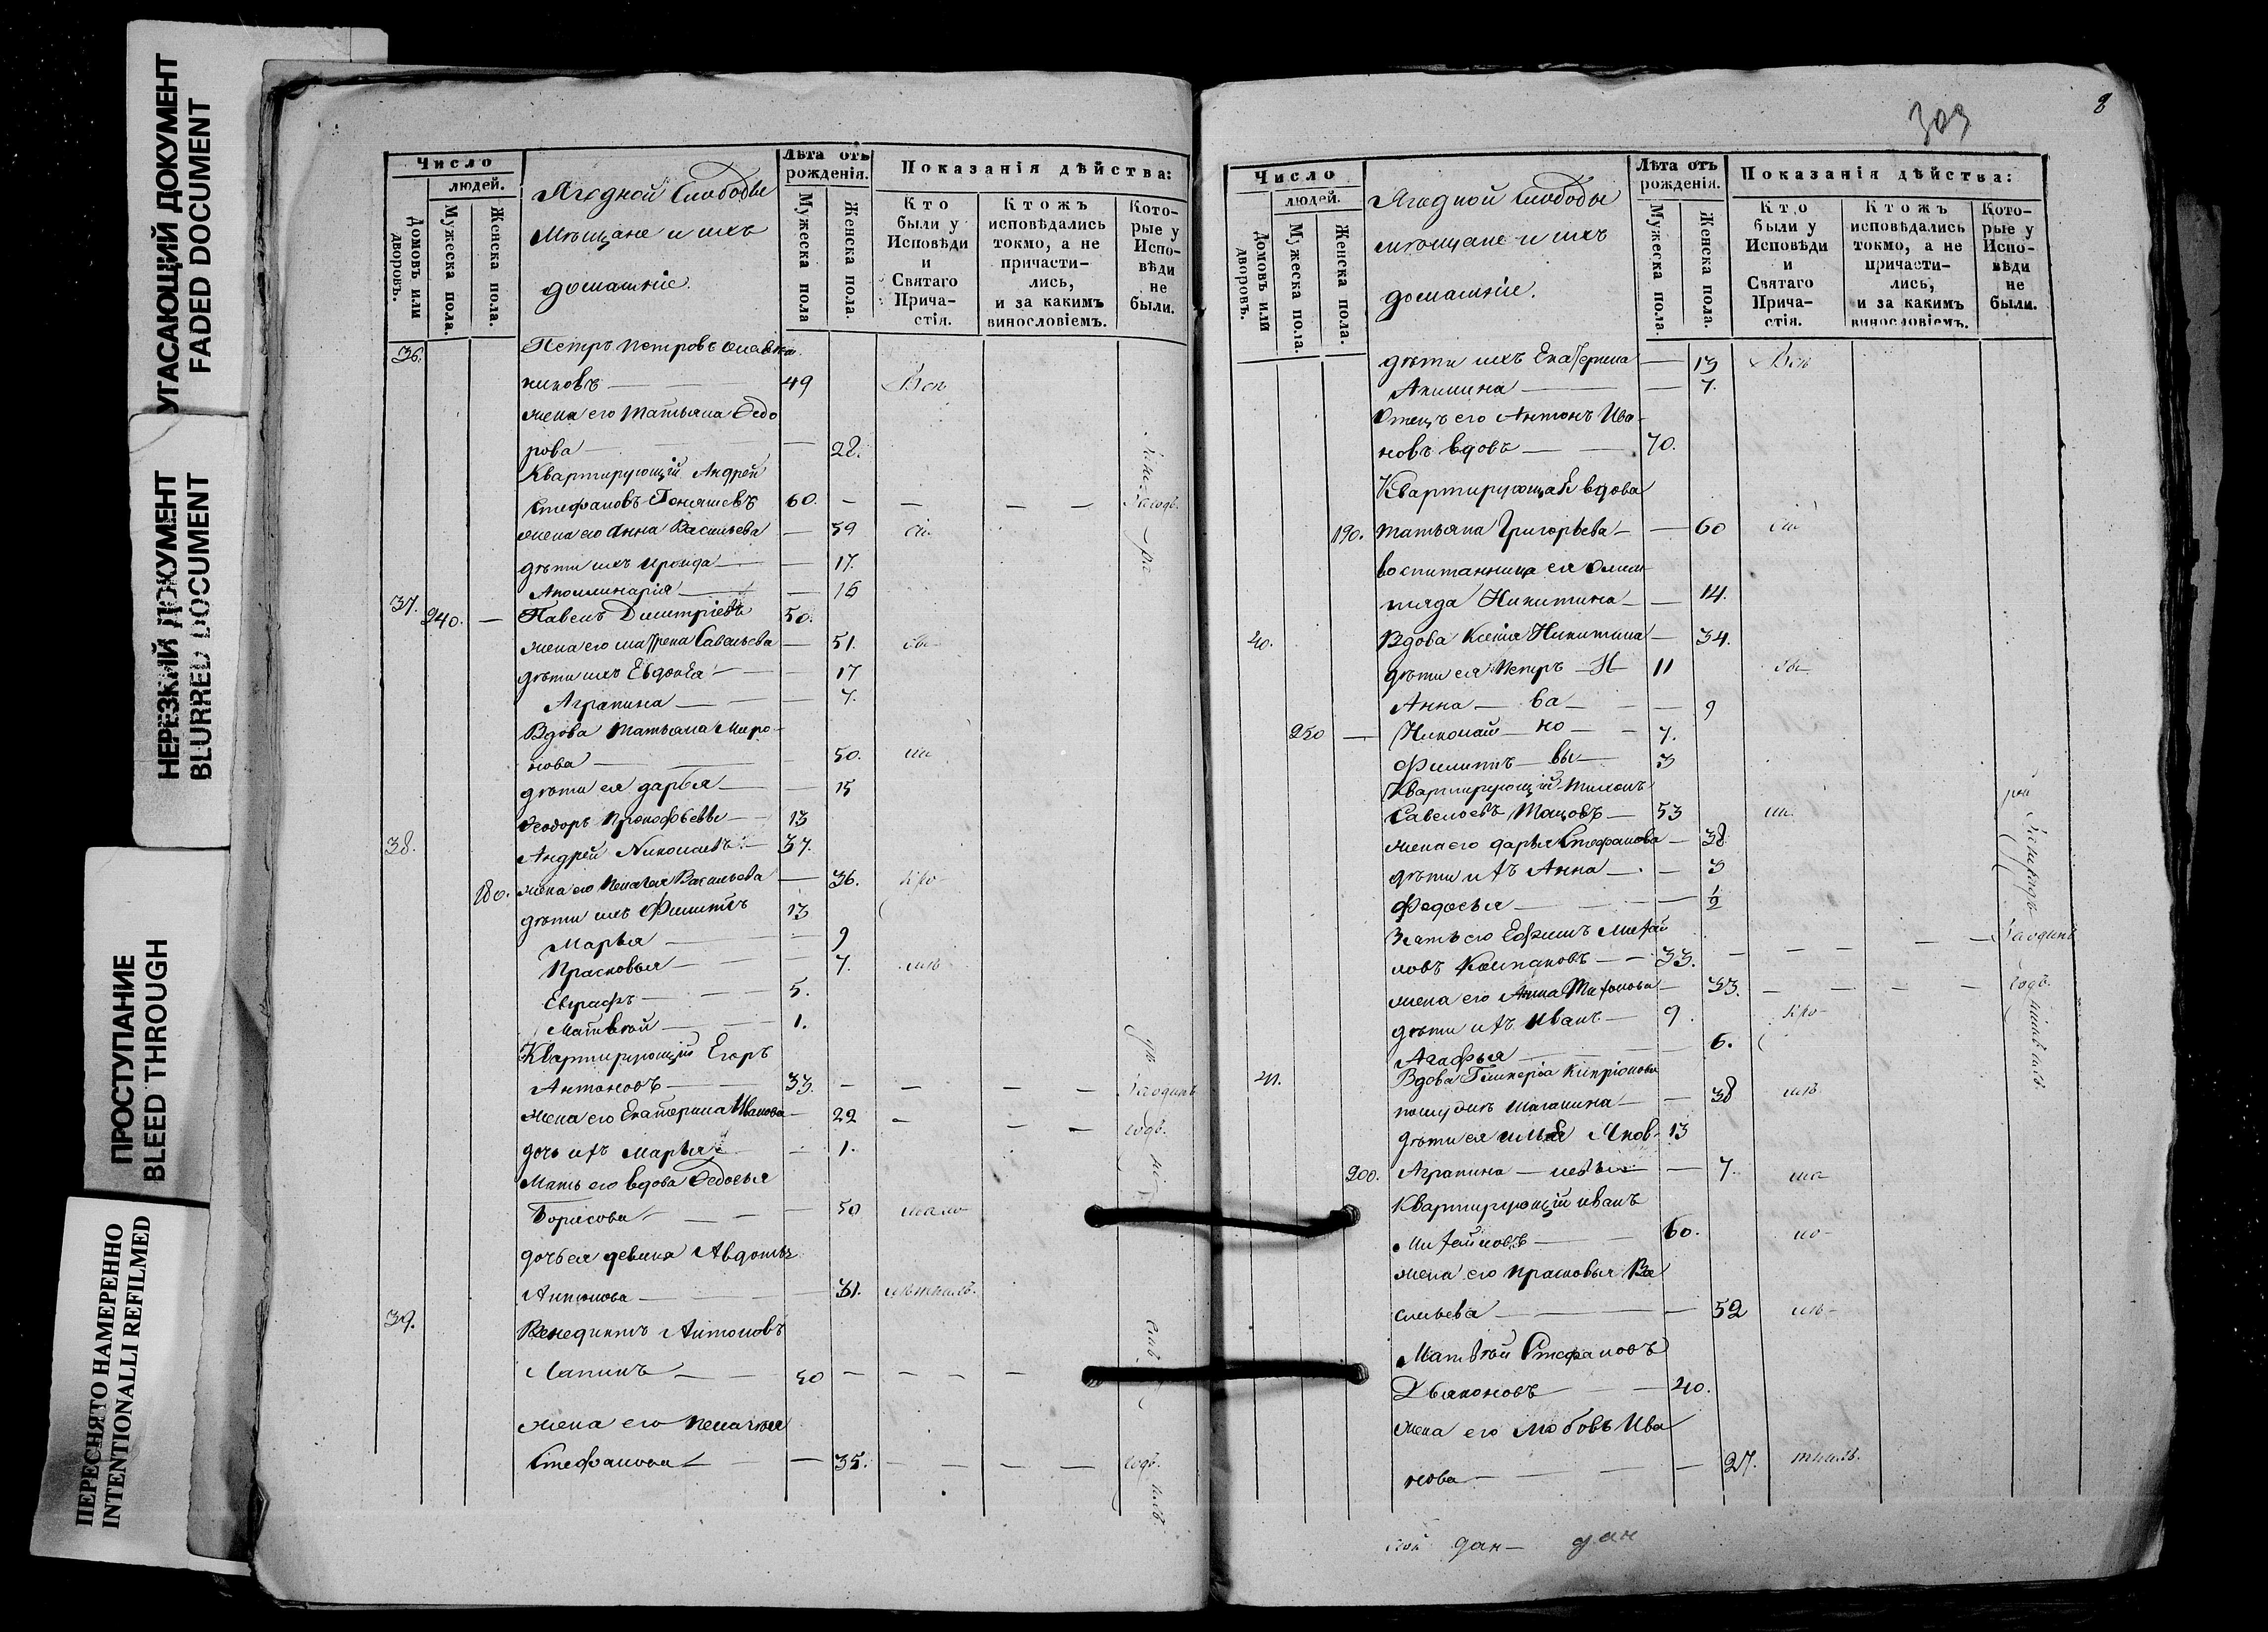 УГАСАЮЩИЙ ДОКУМЕНТ
FADED DOCUMENT
НЕРЕЗКИЙ ДОКУМЕНТ
BLURRED DOCUMENT
ПРОСТУПАНИЕ
BLEED THROUGH
ПЕРЕСНЯТО НАМЕРЕННО
INTENTIONALLI REFILMED
Число
людей.
Домовъ или дворовъ.
Мужеска пола.
Женска пола.
Ягодной Слободы
Мѣщане и ихъ
домашніе.
Лѣта отъ рожденія.
Мужеска пола
Женска пола.
Показанія дѣйства:
Кто были у Исповѣди и Святаго Прича- стія.
Ктожъ исповѣдались токмо, а не причасти- лись, и за какимъ винословіемъ.
Кото- рые у Испо- вѣди не были.
36. Петръ Петровъ
никовъ — 49 Вси
жена его Татьяна Ѳедо
рова — 28.
Квартирующій Андрей
Стефановъ 60. — — — —
жена его Анна Васильева — 59
дѣти ихъ Ираида — 17.
Аполлинарія — 16
37. 240. — Павелъ Димитріевъ 50.
жена его Матрена Савельева — 51.
дѣти ихъ Евдокія — 17
Аграпина — 7.
Вдова Татьяна Миро-
нова — 50.
дѣти ея Дарья — 15
Ѳеодоръ Прокофьевы — 13
38. Андрей Николаевъ — 37.
180. жена его Пелагея Васильева — 36.
дѣти ихъ Филиппъ 13
Марья — 9
Прасковья — 7.
Евграфъ — 5.
Матвей — 1.
Квартирующій Егоръ
Антоновъ — 33. — — — — за одинъ
жена его Екатерина Иванова — 22 — — — годъ.
дочь ихъ Марья — 1.
Мать его вдова Ѳедосья
Борисова — 50
дочь ея девица Авдотья
Антонова — 31.
39. Венедиктъ Антоновъ
Лапинъ — 50 — — — —
жена его Пелагея
Стефанова — 35. — — — — годъ.
303
8
Число
людей.
Домовъ или дворовъ.
Мужеска пола.
Женска пола.
Ягодной Слободы
мѣщане и ихъ
домашніе.
Лѣта отъ рожденія.
Мужеска пола.
Женска пола.
Показанія дѣйства:
Кто были у Исповѣди и Святаго Прича- стія.
Ктожъ исповѣдались токмо, а не причасти- лись, и за какимъ винословіемъ.
Кото- рые у Испо- вѣди не были.
дѣти ихъ Екатерина — 13 Вси
Акилина — 7.
Отецъ его Антонъ Ива-
новъ вдовъ — 70.
Квартирующая вдова
190. Татьяна Григорьева — 60
воспитанница ея Олим
пиада Никитина — 14.
40. Вдова Ксенія Никитина — 34.
дѣти ея Петръ — Н 11
Анна — ва — 9
250 — Николай — ко — 7.
Филиппъ — вы — 3
Квартирующій Тихонъ
Савельевъ 53
жена его Дарья Стефанова — 38
дѣти ихъ Анна — 3
Федосья — 1/2
Зять его Ефимъ Михай
ловъ — 33. — — — — за одинъ
жена его Анна Тихонова — 33. — — — — годъ.
дѣти ихъ Иванъ — 9.
Агафья — 6.
41. Вдова Гликерія Кипріонова
Шагалина — 38
дѣти ея Илья Яков- 13
200. Аграпина — левы — 7.
Квартирующій Иванъ
Михайловъ — 60.
жена его Прасковья Ва
сильева — 52
Матвей Стефановъ
Дьяконовъ — 40.
жена его Любовь Ива
нова — 27.